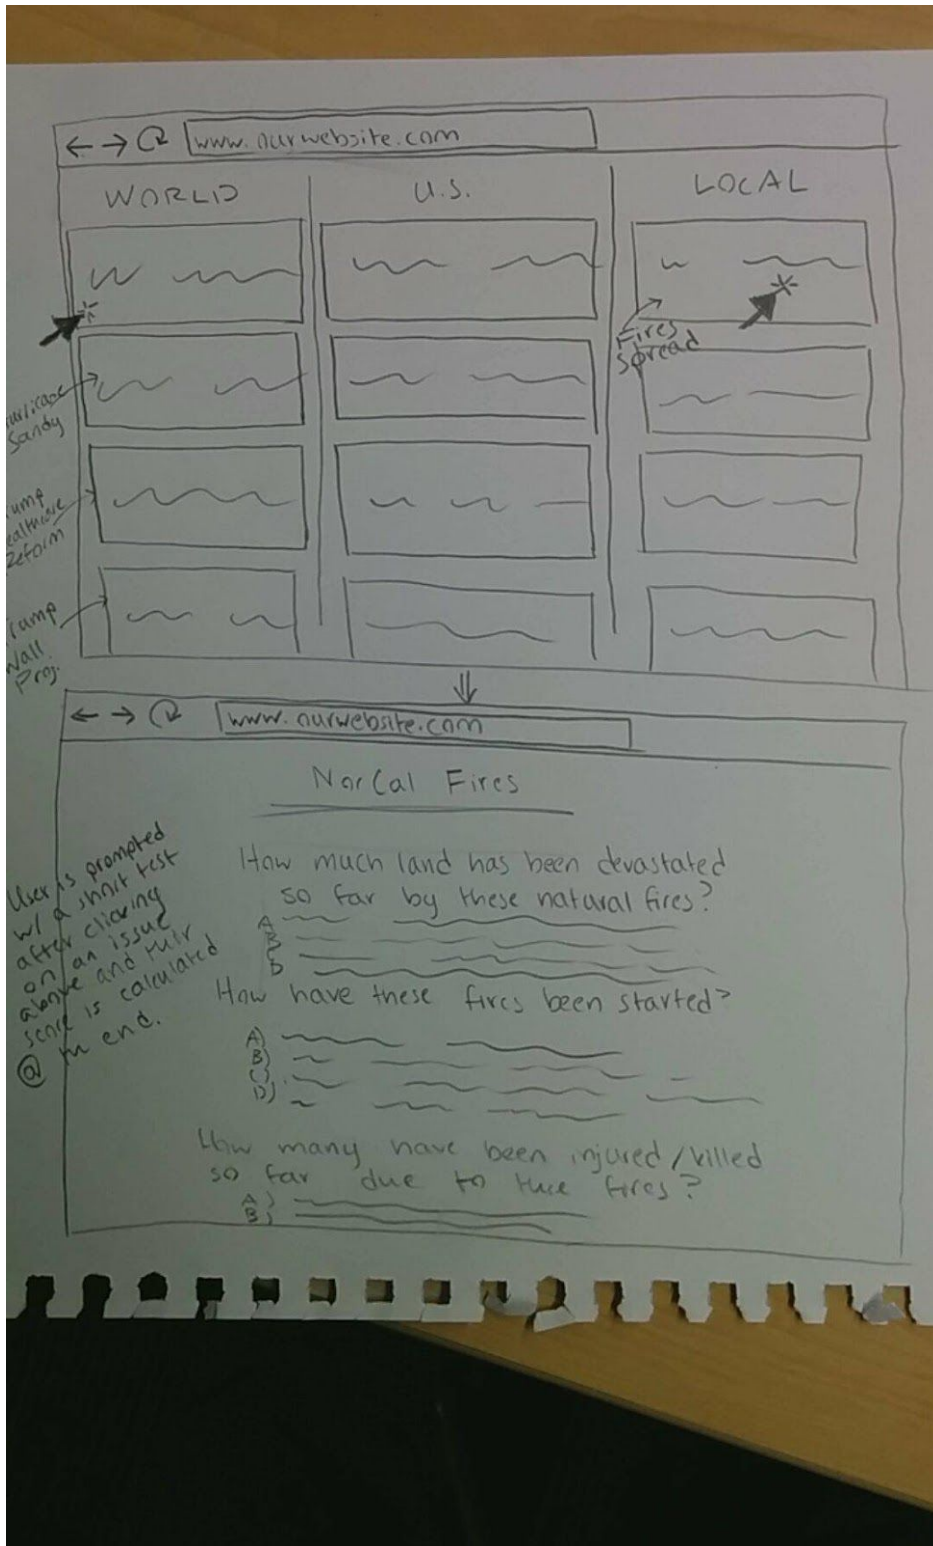 www.ourwebsite.com
WORLD
U.S.
LOCAL
Fires
Spread
Sandy
Reform
Wall
Proj.
www.ourwebsite.com
NorCal Fires
User is prompted
w/ a short test
after clicking
on an issue
above and their
score is calculated
@ the end.
How much land has been devastated
so far by these natural fires?
A
B
D
How have these fires been started?
A)
B)
C)
D)
How many have been injured/killed
so far due to these fires?
A)
B)